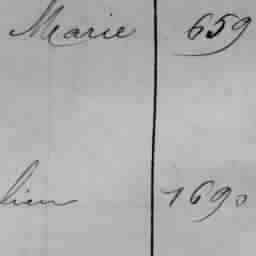 Marie 659
lien 1690